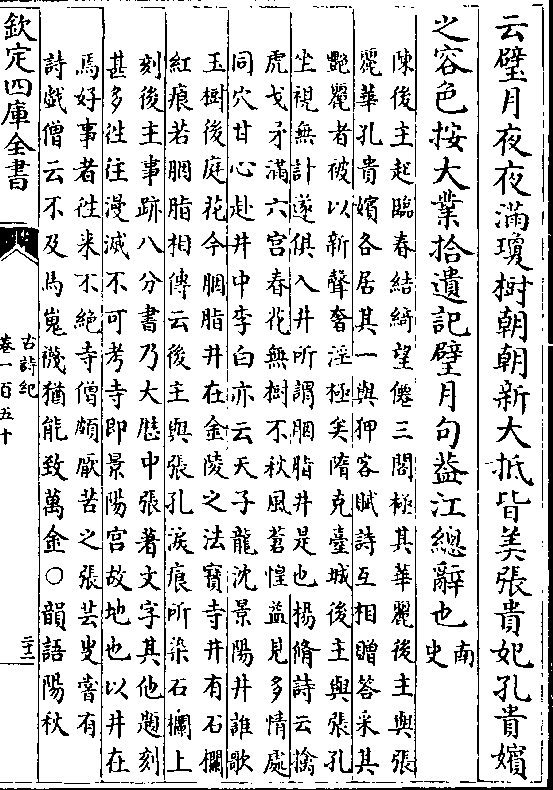 云璧月夜夜滿瓊樹朝朝新大抵皆美張貴妃孔貴嬪
之容色按大業拾遺記璧月句葢江總辭也南史
陳後主起臨春結綺望僊三閣極其華麗後主與張
麗華孔貴嬪各居其一與狎客賦詩互相贈答采其
艷麗者被以新聲奢淫極矣隋克臺城後主與張孔
坐視無計遂俱入井所謂胭脂井是也楊脩詩云擒
虎戈矛滿六宫春花無樹不秋風蒼惶益見多情處
同穴甘心赴井中李白亦云天子龍沈景陽井誰歌
玉樹後庭花今胭脂井在金陵之法寶寺井有石欄
紅痕若胭脂相傳云後主與張孔淚痕所染石欄上
刻後主事跡八分書乃大厯中張著文字其他題刻
甚多徃徃漫滅不可考寺即景陽宫故地也以井在
焉好事者徃来不絶寺僧頗厭苦之張芸叟嘗有
詩戯僧云不及馬嵬襪猶能致萬金○韻語陽秋
欽定四庫全書
古詩紀
卷一百五十
二十二